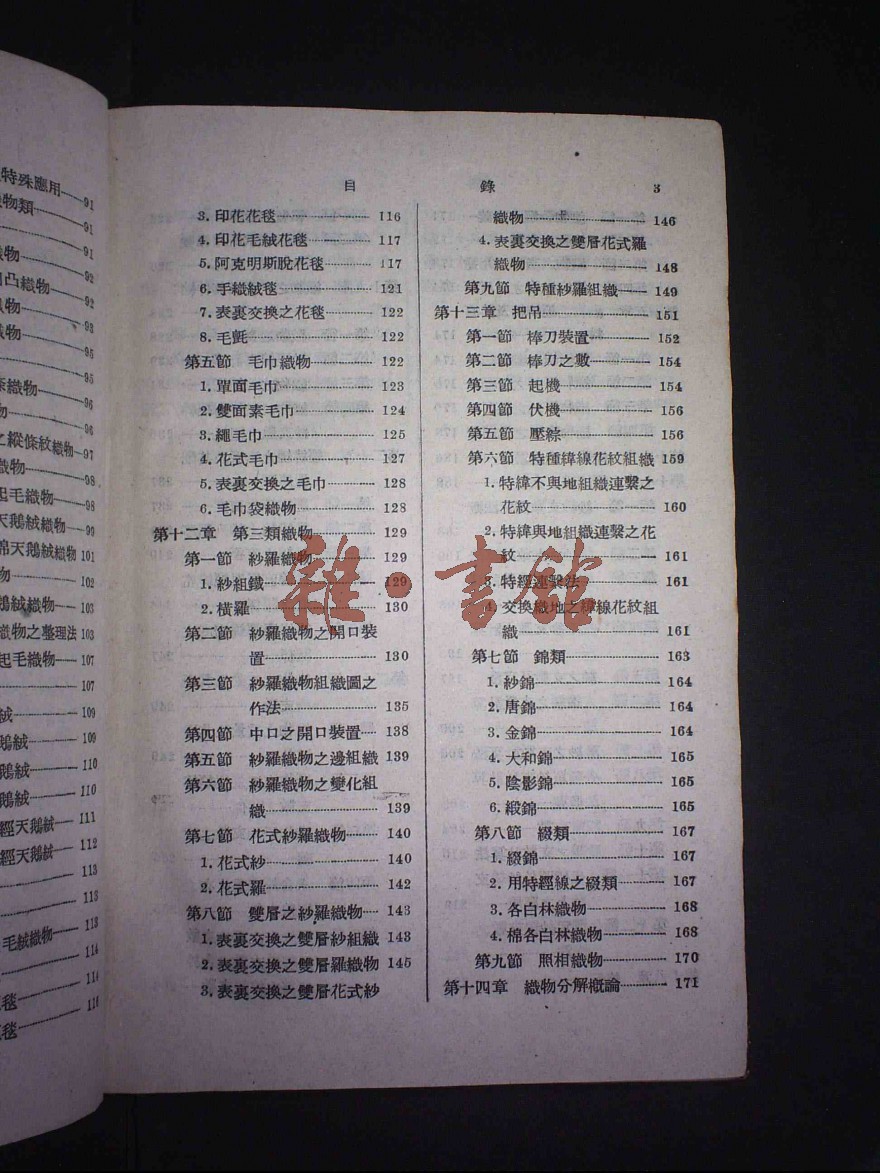 特殊應用 91
物類 91
91
物 92
凸織物 92
物 93
織物 95
95
織物 96
物 96
之縱條紋織物 97
織物 98
起毛織物 98
天鵝絨織物 99
棉天鵝絨織物 101
物 102
鵝絨織物 103
織物之整理法 103
起毛織物 107
107
絨 109
鵝絨 109
鵝絨 110
鵝絨 110
經天鵝絨 111
經天鵝絨 112
113
113
毛絨織物 113
114
毯 114
毯 116
目 錄 3
3.印花花毯 116
4.印花毛絨花毯 117
5.阿克明斯脫花毯 117
6.手織絨毯 121
7.表裏交換之花毯 122
8.毛氈 122
第五節 毛巾織物 122
1.單面毛巾 123
2.雙面素毛巾 124
3.繩毛巾 125
4.花式毛巾 127
5.表裏交換之毛巾 128
6.毛巾袋織物 128
第十二章 第三類織物 129
第一節 紗羅織物 129
1.紗組織 129
2.橫羅 130
第二節 紗羅織物之開口裝
置 130
第三節 紗羅織物組織圖之
作法 135
第四節 中口之開口裝置 138
第五節 紗羅織物之邊組織 139
第六節 紗羅織物之變化組
織 139
第七節 花式紗羅織物 140
1.花式紗 140
2.花式羅 142
第八節 雙層之紗羅織物 143
1.表裏交換之雙層紗組織 143
2.表裏交換之雙層羅織物 145
3.表裏交換之雙層花式紗
織物 146
4.表裏交換之雙層花式羅
織物 148
第九節 特種紗羅組織 149
第十三章 把吊 151
第一節 棒刀裝置 152
第二節 棒刀之數 154
第三節 起機 154
第四節 伏機 156
第五節 壓綜 156
第六節 特種緯線花紋組織 159
1.特緯不與地組織連繫之
花紋 160
2.特緯與地組織連繫之花
紋 161
3.特經連繫法 161
4.交換織地之緯線花紋組
織 161
第七節 錦類 163
1.紗錦 164
2.唐錦 164
3.金錦 164
4.大和錦 165
5.陰影錦 165
6.緞錦 165
第八節 綴類 167
1.綴錦 167
2.用特經線之綴類 167
3.各白林織物 168
4.棉各白林織物 168
第九節 照相織物 170
第十四章 織物分解概論 171
雜·書館